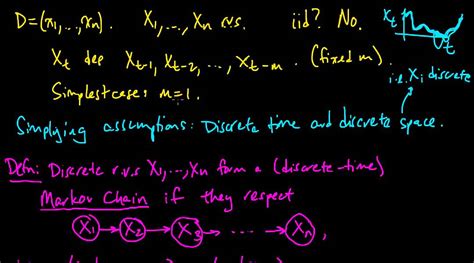 D=(x₁,...,xₙ). X₁,...,Xₙ r.v.s. iid? No.
Xₜ
t
Xₜ dep Xₜ₋₁, Xₜ₋₂, ..., Xₜ₋ₘ. (fixed m).
i.e. Xᵢ discrete
Simplest case: m=1.
Simplying assumptions: Discrete time and discrete space.
Defn: Discrete r.v.s X₁,...,Xₙ form a (discrete-time)
Markov Chain if they respect
X₁ → X₂ → X₃ → ... → Xₙ,